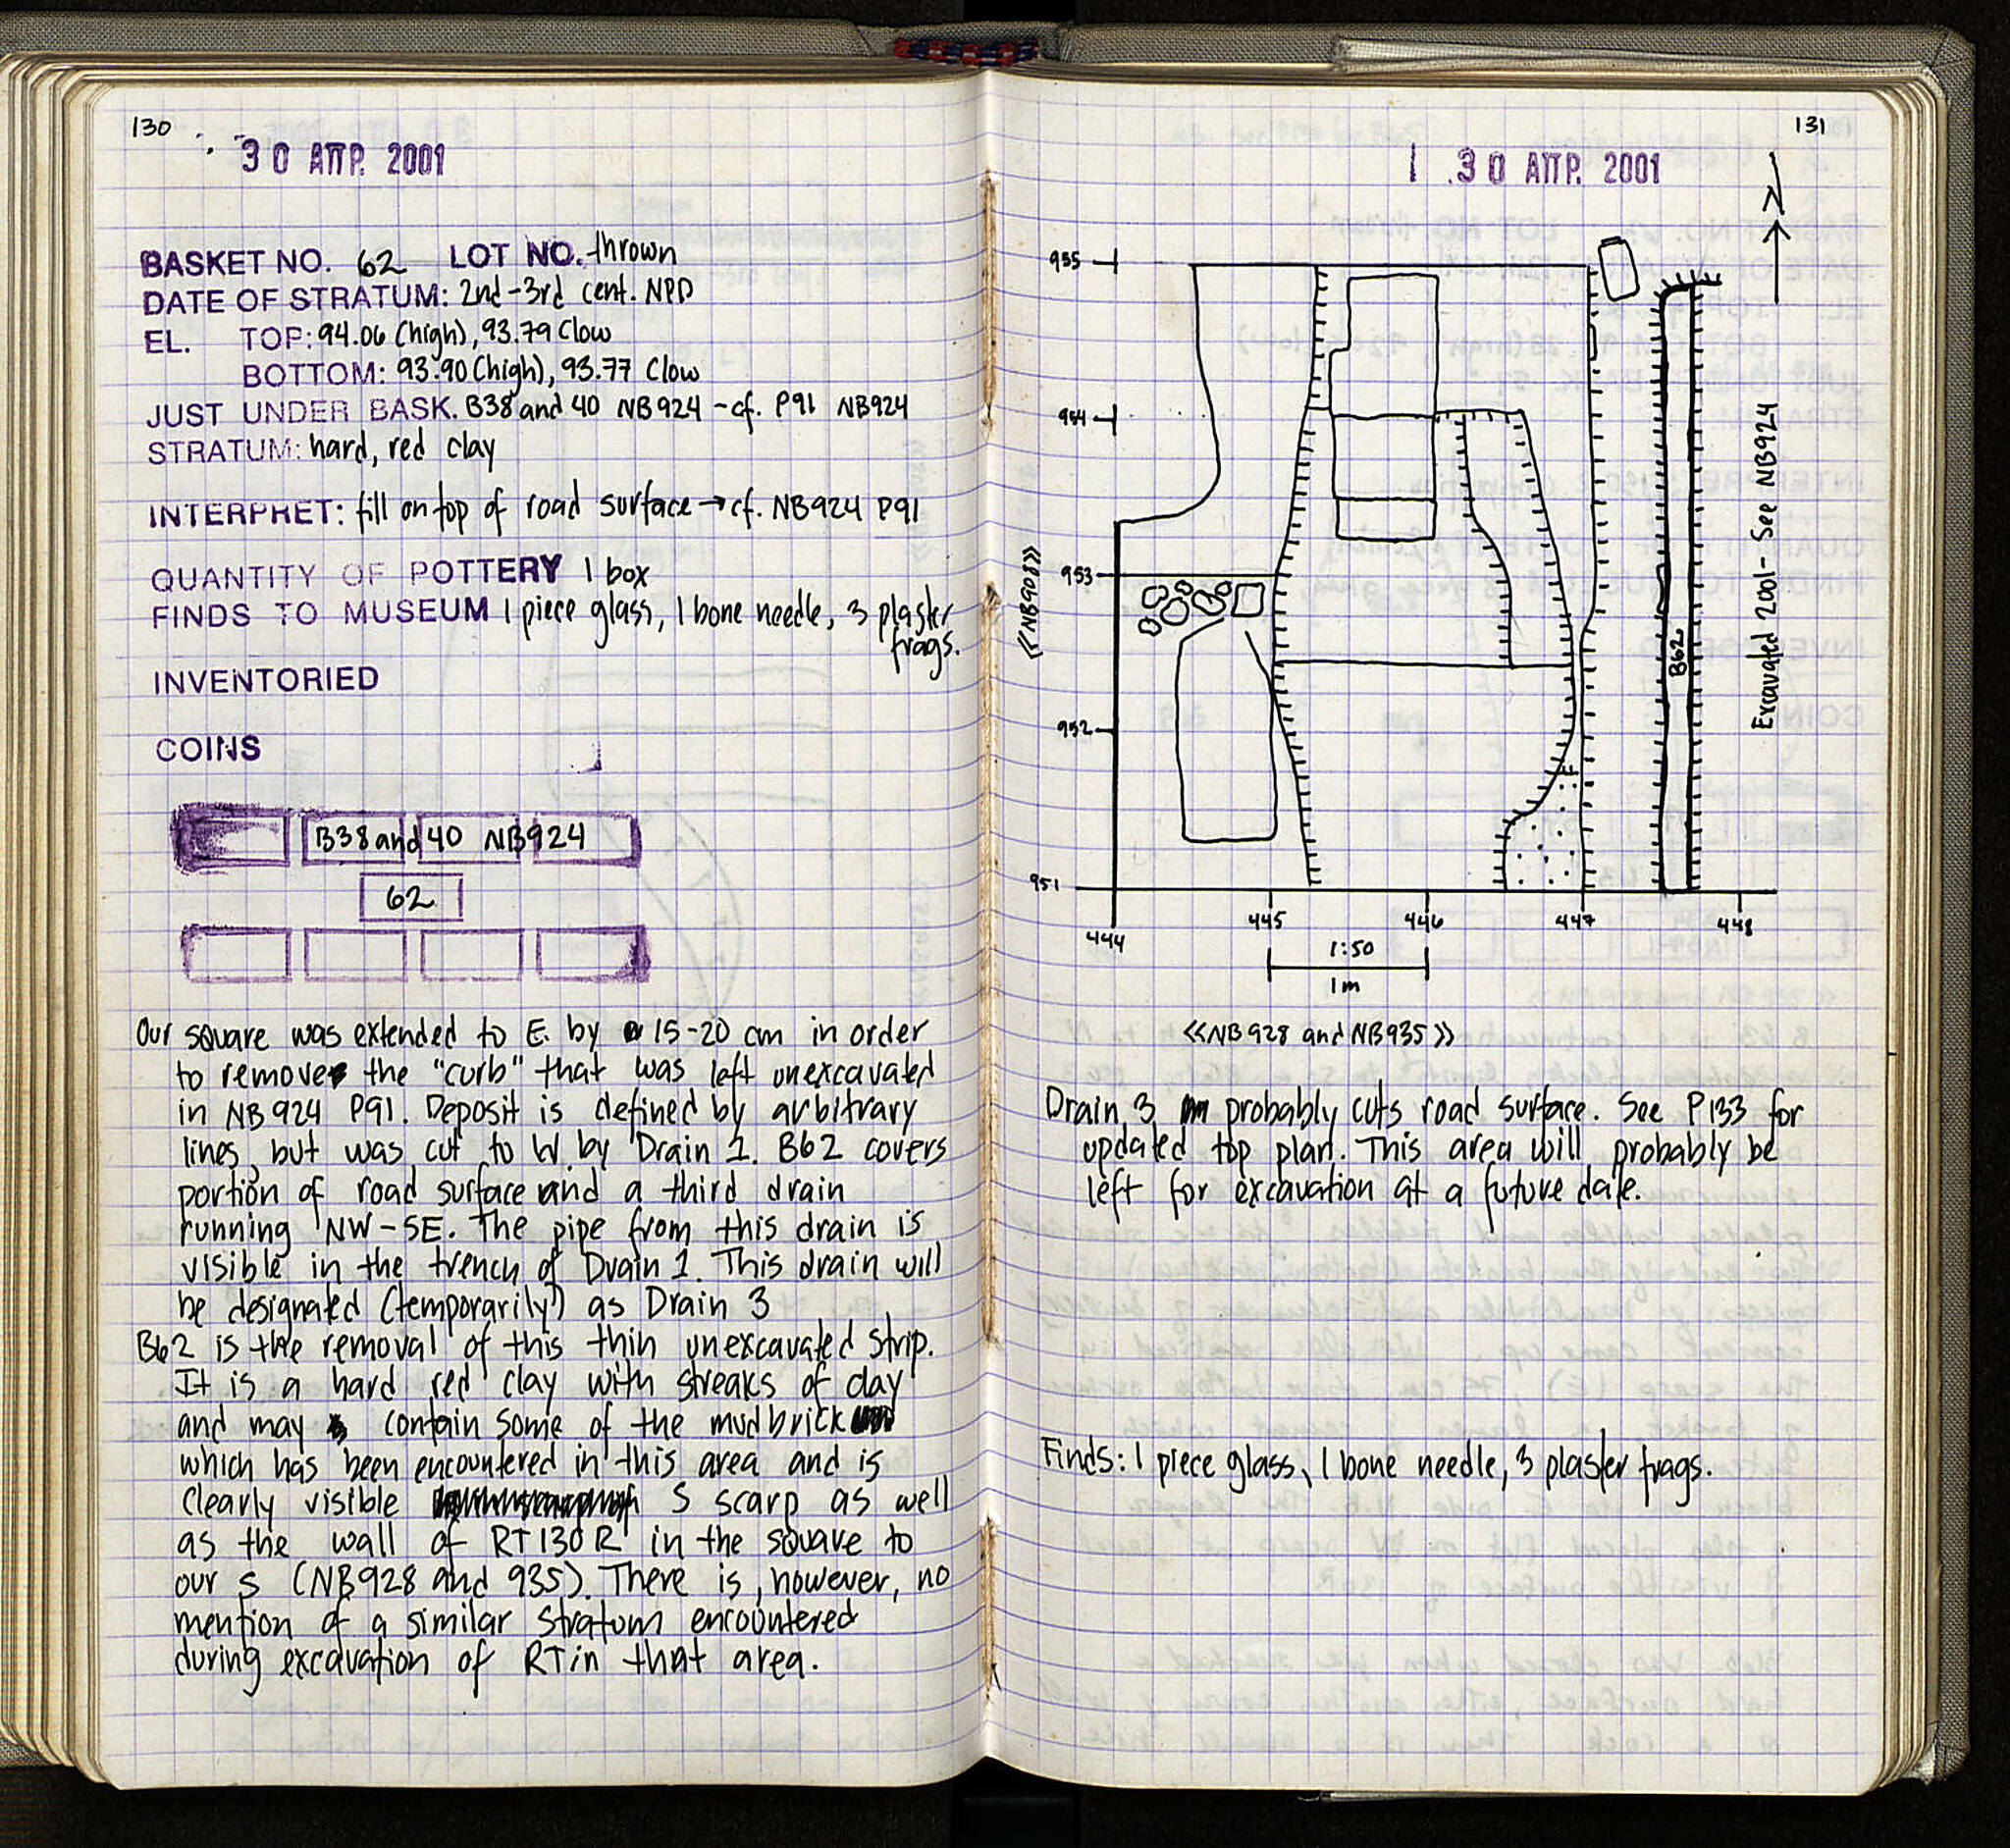 130
30 ΑΠΡ. 2001
BASKET NO. 62 LOT NO. thrown
DATE OF STRATUM: 2nd-3rd cent. NPD
EL. TOP: 94.06 (high), 93.79 (low
BOTTOM: 93.90 (high), 93.77 (low
JUST UNDER BASK. B38 and 40 NB924 - cf. P91 NB924
STRATUM: hard, red clay
INTERPRET: fill on top of road surface → cf. NB924 P91
QUANTITY OF POTTERY 1 box
FINDS TO MUSEUM 1 piece glass, 1 bone needle, 3 plaster
frags.
INVENTORIED
COINS
B38 and 40 NB924
62
Our square was extended to E. by 15-20 cm in order
to remove the "curb" that was left unexcavated
in NB924 P91. Deposit is defined by arbitrary
lines, but was cut to W. by Drain 1. B62 covers
portion of road surface and a third drain
running NW-SE. The pipe from this drain is
visible in the trench of Drain 1. This drain will
be designated (temporarily) as Drain 3
B62 is the removal of this thin unexcavated strip.
It is a hard red clay with streaks of clay
and may contain some of the mudbrick
which has been encountered in this area and is
clearly visible S scarp as well
as the wall of RT130R in the square to
our S (NB928 and 935). There is, however, no
mention of a similar stratum encountered
during excavation of RT in that area.
131
1 30 ΑΠΡ. 2001
N
955
954
953
952
951
444
445
446
447
448
《NB908》
B62
Excavated 2001- See NB924
1:50
1m
《NB928 and NB935》
Drain 3 probably cuts road surface. See P133 for
updated top plan. This area will probably be
left for excavation at a future date.
Finds: 1 piece glass, 1 bone needle, 3 plaster frags.